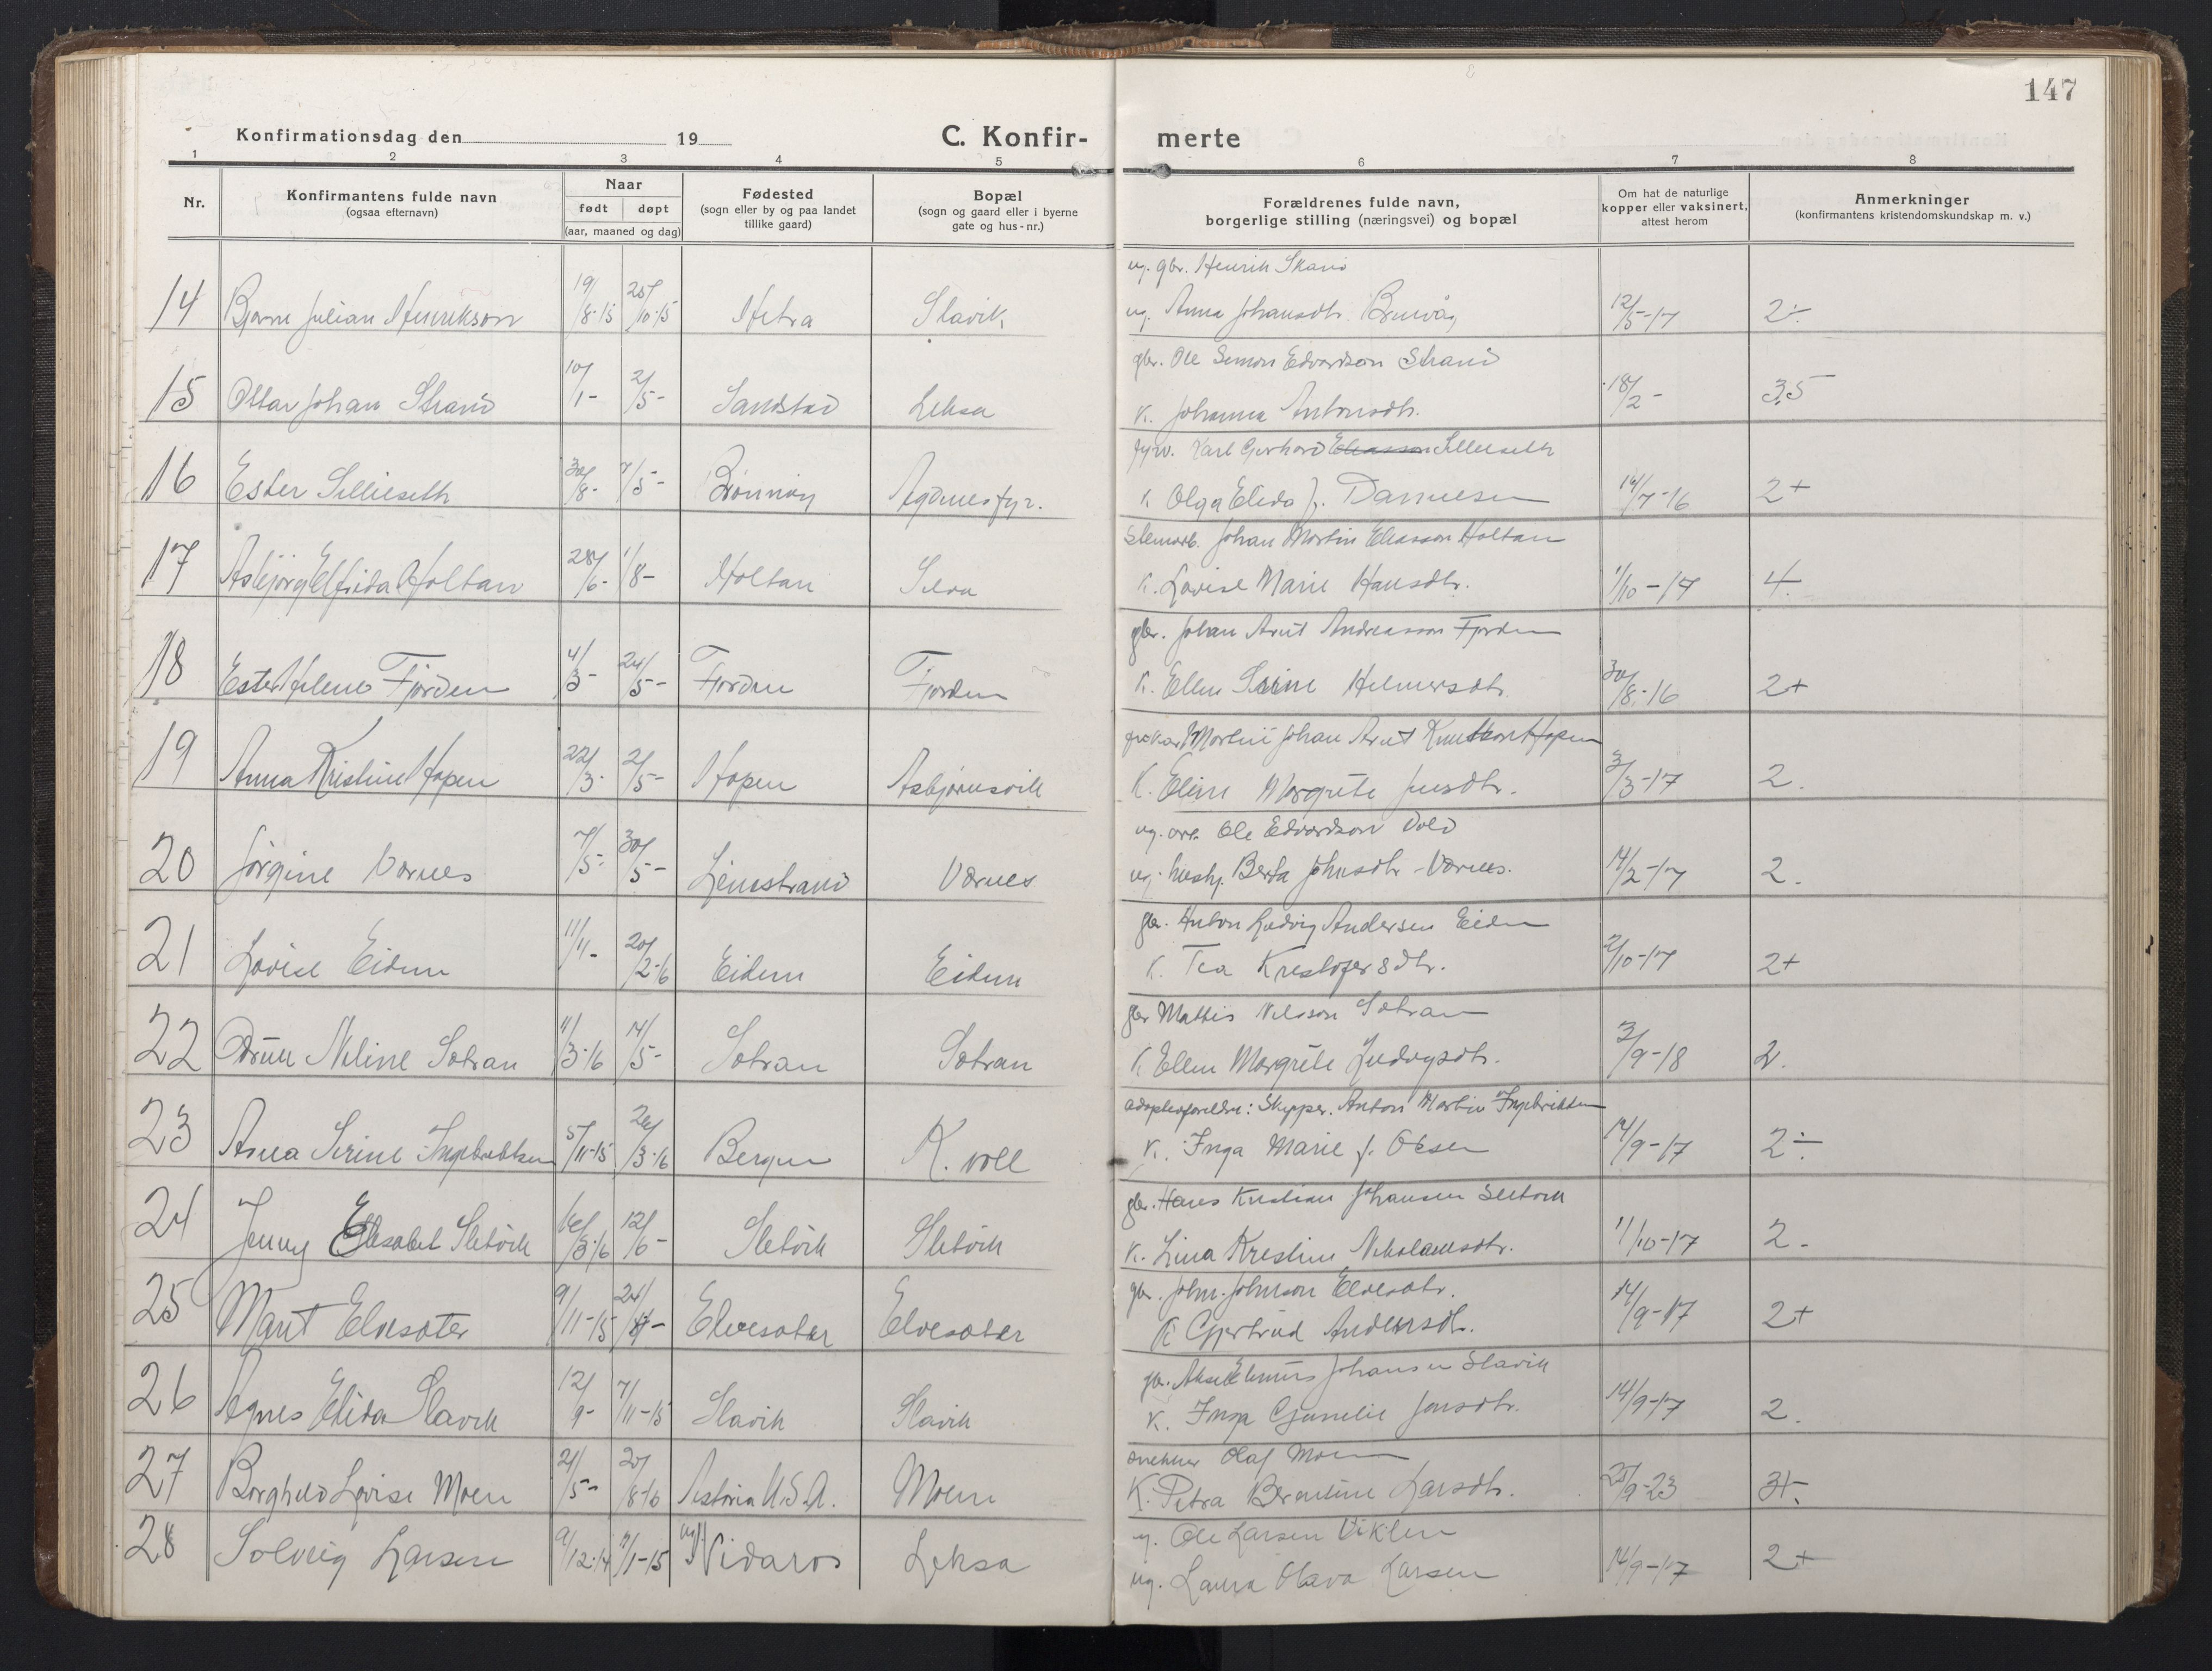 147
Konfirmationsdag den 19 C. Konfir- merte
1 2 3 4 5 6 7 8
Nr. Konfirmantens fulde navn (ogsaa efternavn) Naar født døpt (aar, maaned og dag) Fødested (sogn eller by og paa landet tillike gaard) Bopæl (sogn og gaard eller i byerne gate og hus-nr.) Forældrenes fulde navn, borgerlige stilling (næringsvei) og bopæl Om hat de naturlige kopper eller vaksinert, attest herom Anmerkninger (konfirmantens kristendomskundskap m. v.)
ug. gbr. Henrik Skavø
14 Bjarne Julian Henrikson 19/8-15 25/10-15 Hitra Slavik ug. Anna Johansdtr. 12/5-17 2÷
gbr. Ole Simon Edvardson Strand
15 Ottar Johan Strand 10/1- 2/5- Sandstad Leksa K. Johanna Antonsdtr. 18/2- 3,5
fyrv. Karl Gerhard Eliasson Sellieseth
16 Ester Sellieseth 30/8- 7/5- Brönnöy Agdenes fyr. K. Olga Elida f. Danielsen 14/7-16 2+
Johan Martin Eliasson Holtan
17 Asbjörg Elfrida Holtan 28/6- 1/8- Holtan Selva K. Lovise Marie Hansdtr. 1/10-17 4.
gbr. Johan Arnt Andreasson Fjorden
18 Ester Helene Fjorden 4/3- 24/5- Fjorden Fjorden K. Ellen Serine Helmersdtr. 30/8-16 2+
Martin Johan Arnt Knutson Hopen
19 Anna Kristine Hopen 22/3- 2/5- Hopen Asbjørnsvik K. Eline Margrete Jensdtr. 3/3-17 2.
ug. arb. Ole Edvardson Vold
20 Jörgine Værnes 7/5- 30/5- Lenestrand Værnes ug. hush. Berta Johnsdtr Værnes. 14/2-17 2.
gbr. Anton Ludvig Andersen Eidem
21 Lovise Eidem 11/11- 20/2-16 Eidem Eidem K. Tea Kristofersdtr. 2/10-17 2+
gbr Mattis Nilsson Sötran
22 Neline Sötran 11/3-16 14/5- Sötran Sötran K Ellen Margrete Ludvigsdtr. 3/9-18 2.
Adoptivforeldre: Skipper. Anton Martin Ingebriktsen
23 Asna Serine Ingebriktsen 5/11-15 26/3-16 Bergen K. voll K. Inga Marie f. Olsen 14/9-17 2÷
gbr. Hans Kristian Johansen Sletvik
24 Jenny Elisabet Sletvik 16/3-16 12/6- Sletvik Sletvik K. Lina Kristine Nikolaisdtr. 1/10-17 2.
gbr. John Johnson Elvesæter.
25 Marit Elvesæter 9/11-15 Elvesæter Elvesæter K Gjertrud Andersdtr. 14/9-17 2+
gbr. Johansen Slavik
26 Agnes Elida Slavik 12/9- 7/11-15 Slavik Slavik K. Inga Gjurine Jonsdtr. 14/9-17 2.
snekker Olaf Moen
27 Borghild Lovise Moen 21/5- 20/8-16 Astoria U.S.A. Moen K. Petra Berntine Larsdtr. 25/9-23 3+.
ug. Ole Larsen Viklem
28 Solveig Larsen 9/12-14 7/1-15 Nidaros Leksa ug. Laura Olava Larsen 14/9-17 2+